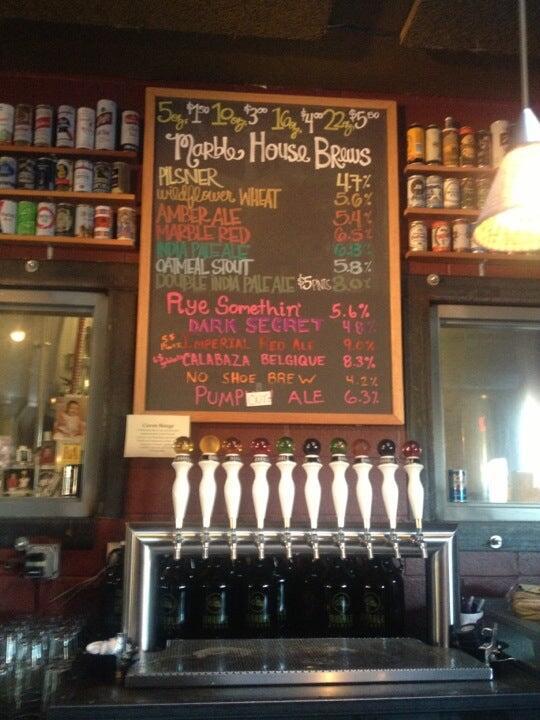 5oz. $1.50 10oz. $3.00 16oz. $4.00 22oz $5.50
Marble House Brews
PILSNER 4.7%
wildflower WHEAT 5.6%
AMBER ALE 5.4%
MARBLE RED 6.5%
INDIA PALE ALE 6.8%
OATMEAL STOUT 5.8%
DOUBLE INDIA PALE ALE $5 PINTS 8.0%
Rye Somethin' 5.6%
DARK SECRET 4.8%
IMPERIAL RED ALE 9.0%
CALABAZA BELGIQUE 8.3%
NO SHOE BREW 4.2%
PUMP ALE 6.3%